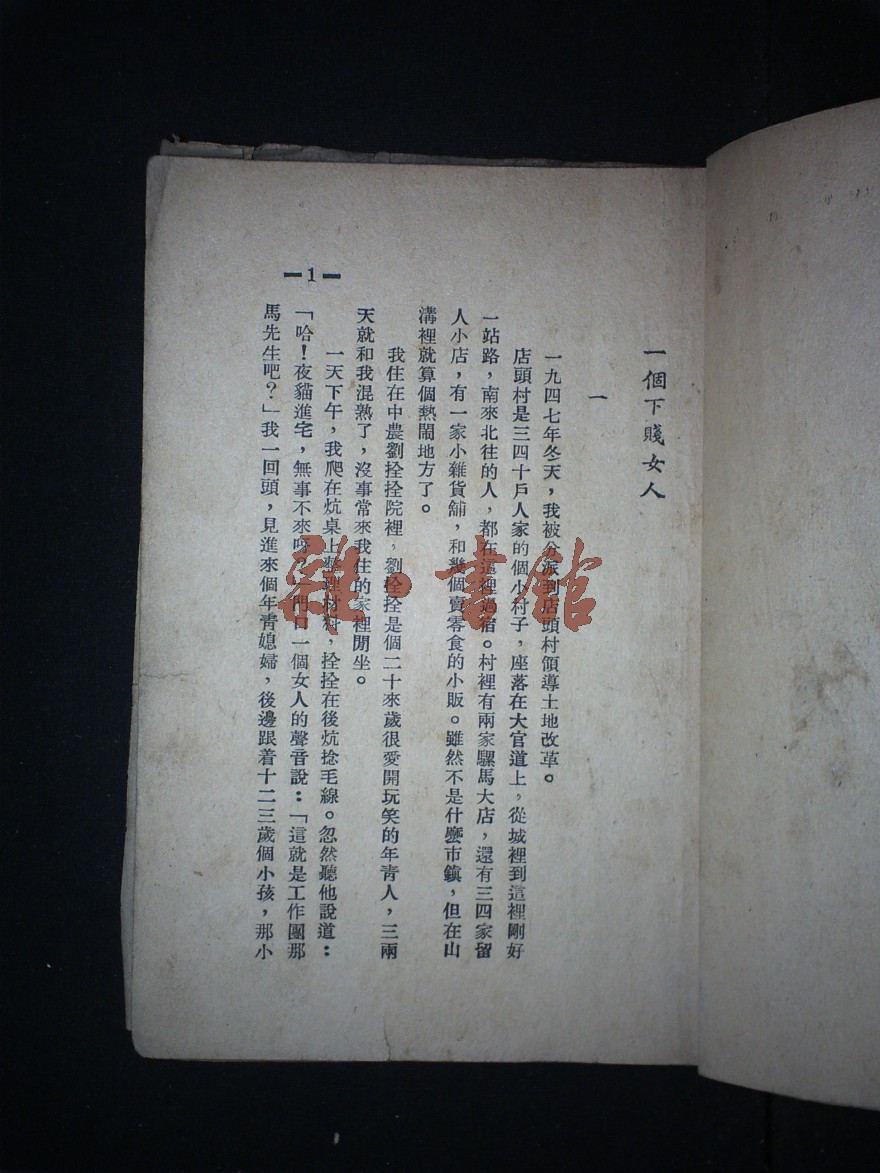 一個下賤女人
一
一九四七年冬天，我被分派到店頭村領導土地改革。
店頭村是三四十戶人家的個小村子，座落在大官道上，從城裡到這裡剛好
一站路，南來北往的人，都在這裡過宿。村裡有兩家騾馬大店，還有三四家留
人小店，有一家小雜貨舖，和幾個賣零食的小販。雖然不是什麼市鎮，但在山
溝裡就算個熱鬧地方了。
我住在中農劉拴拴院裡，劉拴拴是個二十來歲很愛開玩笑的年青人，三兩
天就和我混熟了，沒事常來我住的家裡閒坐。
一天下午，我爬在炕桌上整理材料，拴拴在後炕捻毛線。忽然聽他說道：
「哈！夜貓進宅，無事不來呀？」門口一個女人的聲音說：「這就是工作團那
馬先生吧？」我一回頭，見進來個年青媳婦，後邊跟着十二三歲個小孩，那小
—1—
雜·書館